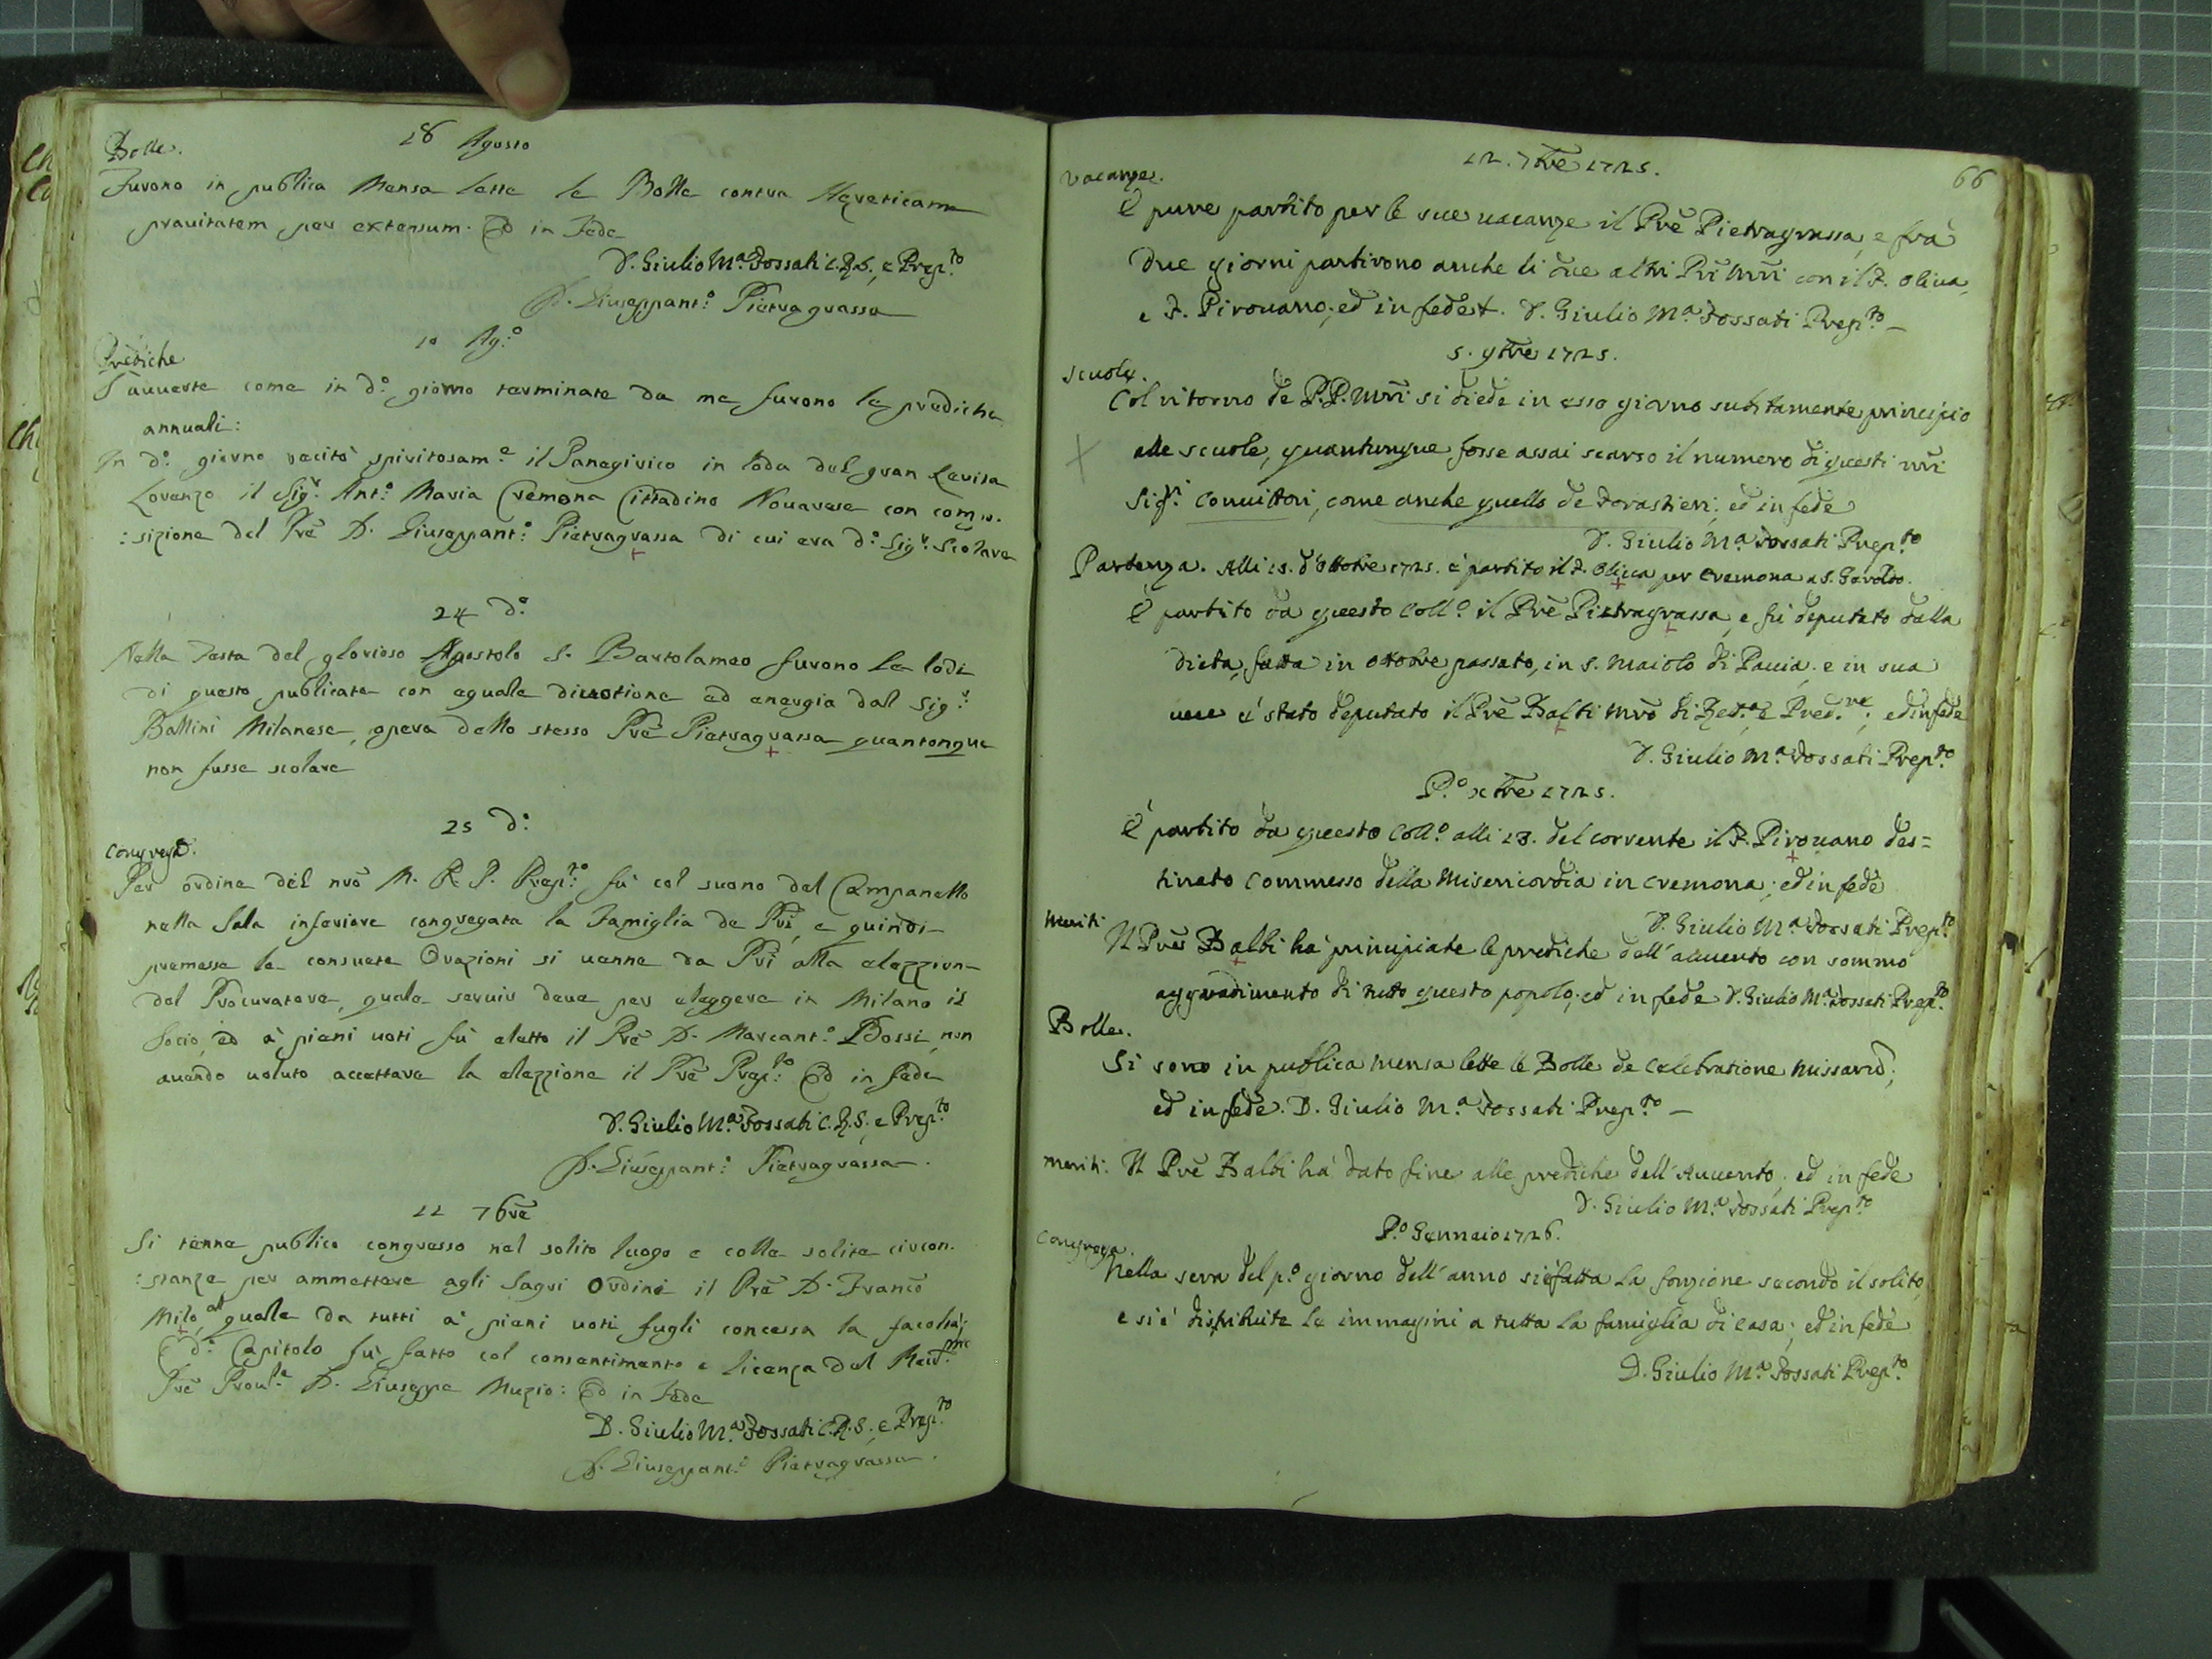 Bolle.
18 Agosto
Furono in publica Mensa lette le Bolle contra Hæreticam
prauitatem per extensum. Ed in Fede
D. Giulio Mª. Fossati C.R.S., e Prep.to
D. Giuseppant.º Pietragrassa
10 Ag.º
Prediche
S'auuerte come in d.º giorno terminate da me furono le prediche
annuali:
In d.º giorno recitò spiritosam.e il Panegirico in loda del gran Leuita
Lorenzo il Sig.r Ant.º Maria Cremona Cittadino Nouarese con compo.
:sizione del Prē D. Giuseppant.º Pietragrassa di cui era d.º Sig.r Scolare
24 d.º
Nella Festa del glorioso Apostolo S. Bartolameo furono le lodi
di questo publicate con eguale diuotione ed energia dal Sig.r
Ballini Milanese, opera dello stesso Prē Pietragrassa quantonque
non fusse scolare
25 d.º
Congregā.
Per ordine del nrō M. R. P. Prep.to fù col suono del Campanello
nella Sala inferiore congregata la Famiglia de Pri, e quindi
premesse le consuete Orazioni si uenne da Pri alla elezzion-
del Procuratore, quale seruir deue per eleggere in Milano il
Socio, ed à pieni uoti fù eletto il Prē D. Marcant.º Bossi, non
auendo uoluto accettare la elezzione il Prē Prep.to Ed in fede
D. Giulio Mª. Fossati C.R.S., e Prep.to
D. Giuseppant.º Pietragrassa.
11 7bre
Si tenne publico congresso nel solito luogo e colle solite circon.
:stanze per ammettere agli Sagri Ordini il Prē D. Franco
Milo, al quale da tutti à pieni uoti fugli concessa la facoltà;
E d.º Capitolo fù fatto col consentimento e licenza del Reud.mo
Prē Prou.le D. Giuseppe Muzio: Ed in Fede
D. Giulio Mª. Fossati C.R.S., e Prep.to
D. Giuseppant.º Pietragrassa.
66
12. 7bre 1725.
Vacanze.
È pure partito per le sue uacanze il Prē Pietragrassa, e frà
due giorni partirono anche li due altri Pri Mri con il F. Oliua,
e F. Pirouano; ed in fede. D. Giulio Mª. Fossati Prep.to
5. 9bre 1725.
Scuole.
Col ritorno de P.P. Mri si diede in esso giorno subitamente principio
alle scuole, quantunque fosse assai scarso il numero di questi nri
Sig.ri Conuittori, come anche quello de Forastieri; ed in fede
D. Giulio Mª. Fossati Prep.to
Partenza. Alli 15. d'Ottobre 1725. è partito il F. Oliua per Cremona a S. Geroldo.
È partito da questo Coll.º il Prē Pietragrassa, e fù deputato dalla
dieta, fatta in Ottobre passato, in S. Maiolo di Pauia; e in sua
uece è stato deputato il Prē Balbi Mrō di Ret.ca e Pred.re; ed in fede
D. Giulio Mª. Fossati Prep.to
P.º Xbre 1725.
È partito da questo Coll.º alli 13. del corrente il F. Pirouano des=
tinato Commesso della Misericordia in Cremona; ed in fede
D. Giulio Mª. Fossati Prep.to
Meriti
Il Prē Balbi hà principiate le prediche dell'auuento con sommo
aggradimento di tutto questo popolo; ed in fede D. Giulio Mª. Fossati Prep.to
Bolle.
Si sono in publica mensa lette le Bolle de Celebratione Missarū;
ed in fede. D. Giulio Mª. Fossati Prep.to
Meriti. Il Prē Balbi hà dato fine alle prediche dell'Auuento; ed in fede
D. Giulio Mª. Fossati Prep.to
P.º Gennaio 1726.
Congrega.
Nella sera del p.º giorno dell'anno si è fatta la fonzione secondo il solito,
e si è distribuite le immagini a tutta la famiglia di casa; ed in fede
D. Giulio Mª. Fossati Prep.to